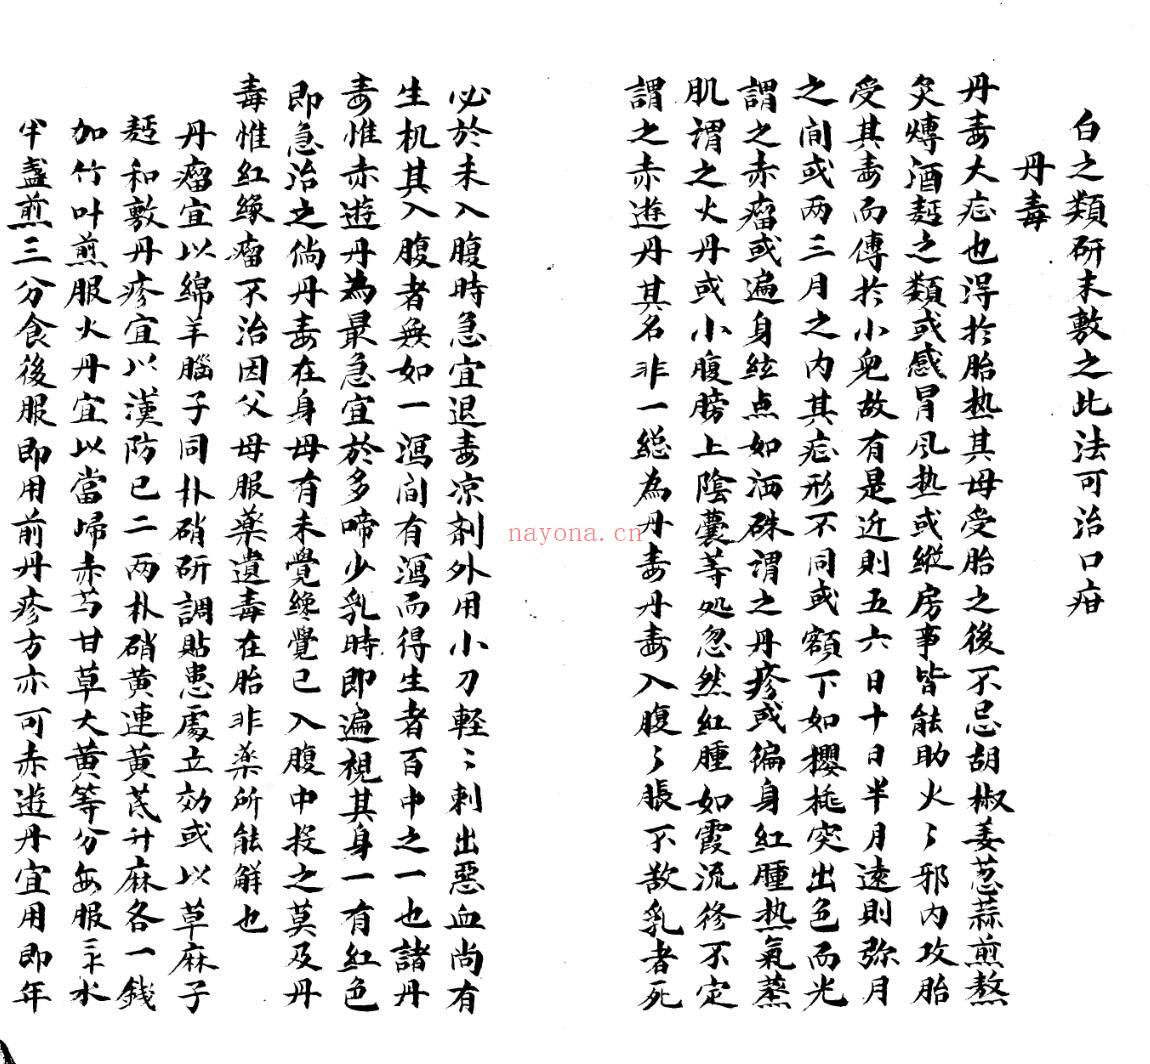 白之類研末敷之此法可治口疳
丹毒
丹毒大症也淂於胎热其母受胎之後不忌胡椒姜葱蒜煎熬
炙煿酒麪之類或感冒风热或縱房事皆能助火〻邪内攻胎
受其毒而傳於小兒故有是近則五六日十日半月遠則弥月
之间或两三月之内其症形不同或額下如櫻桃突出色而光
謂之赤瘤或遍身絃点如洒硃謂之丹疹或徧身红腫热氣蒸
肌谓之火丹或小腹膀上陰囊等处忽然红腫如霞流移不定
謂之赤逰丹其名非一緫為丹毒丹毒入腹〻脹不散乳者死
必於未入腹時急宜退毒凉剂外用小刀輕〻刺出惡血尚有
生机其入腹者無如一瀉间有瀉而得生者百中之一也諸丹
毒惟赤遊丹為最急宜於多啼少乳時即遍視其身一有红色
即急治之倘丹毒在身母有未覺纔覺已入腹中投之莫及丹
毒惟红絲瘤不治因父母服藥遺毒在胎非薬所能解也
丹瘤宜以綿羊腦子同朴硝研調貼患處立効或以草麻子
麪和敷丹疹宜以漢防已二两朴硝黄連黄芪升麻各一錢
加竹叶煎服火丹宜以當歸赤芍甘草大黄等分每服三平水
半盞煎三分食後服即用前丹疹方亦可赤遊丹宜用即年
nayona.cn